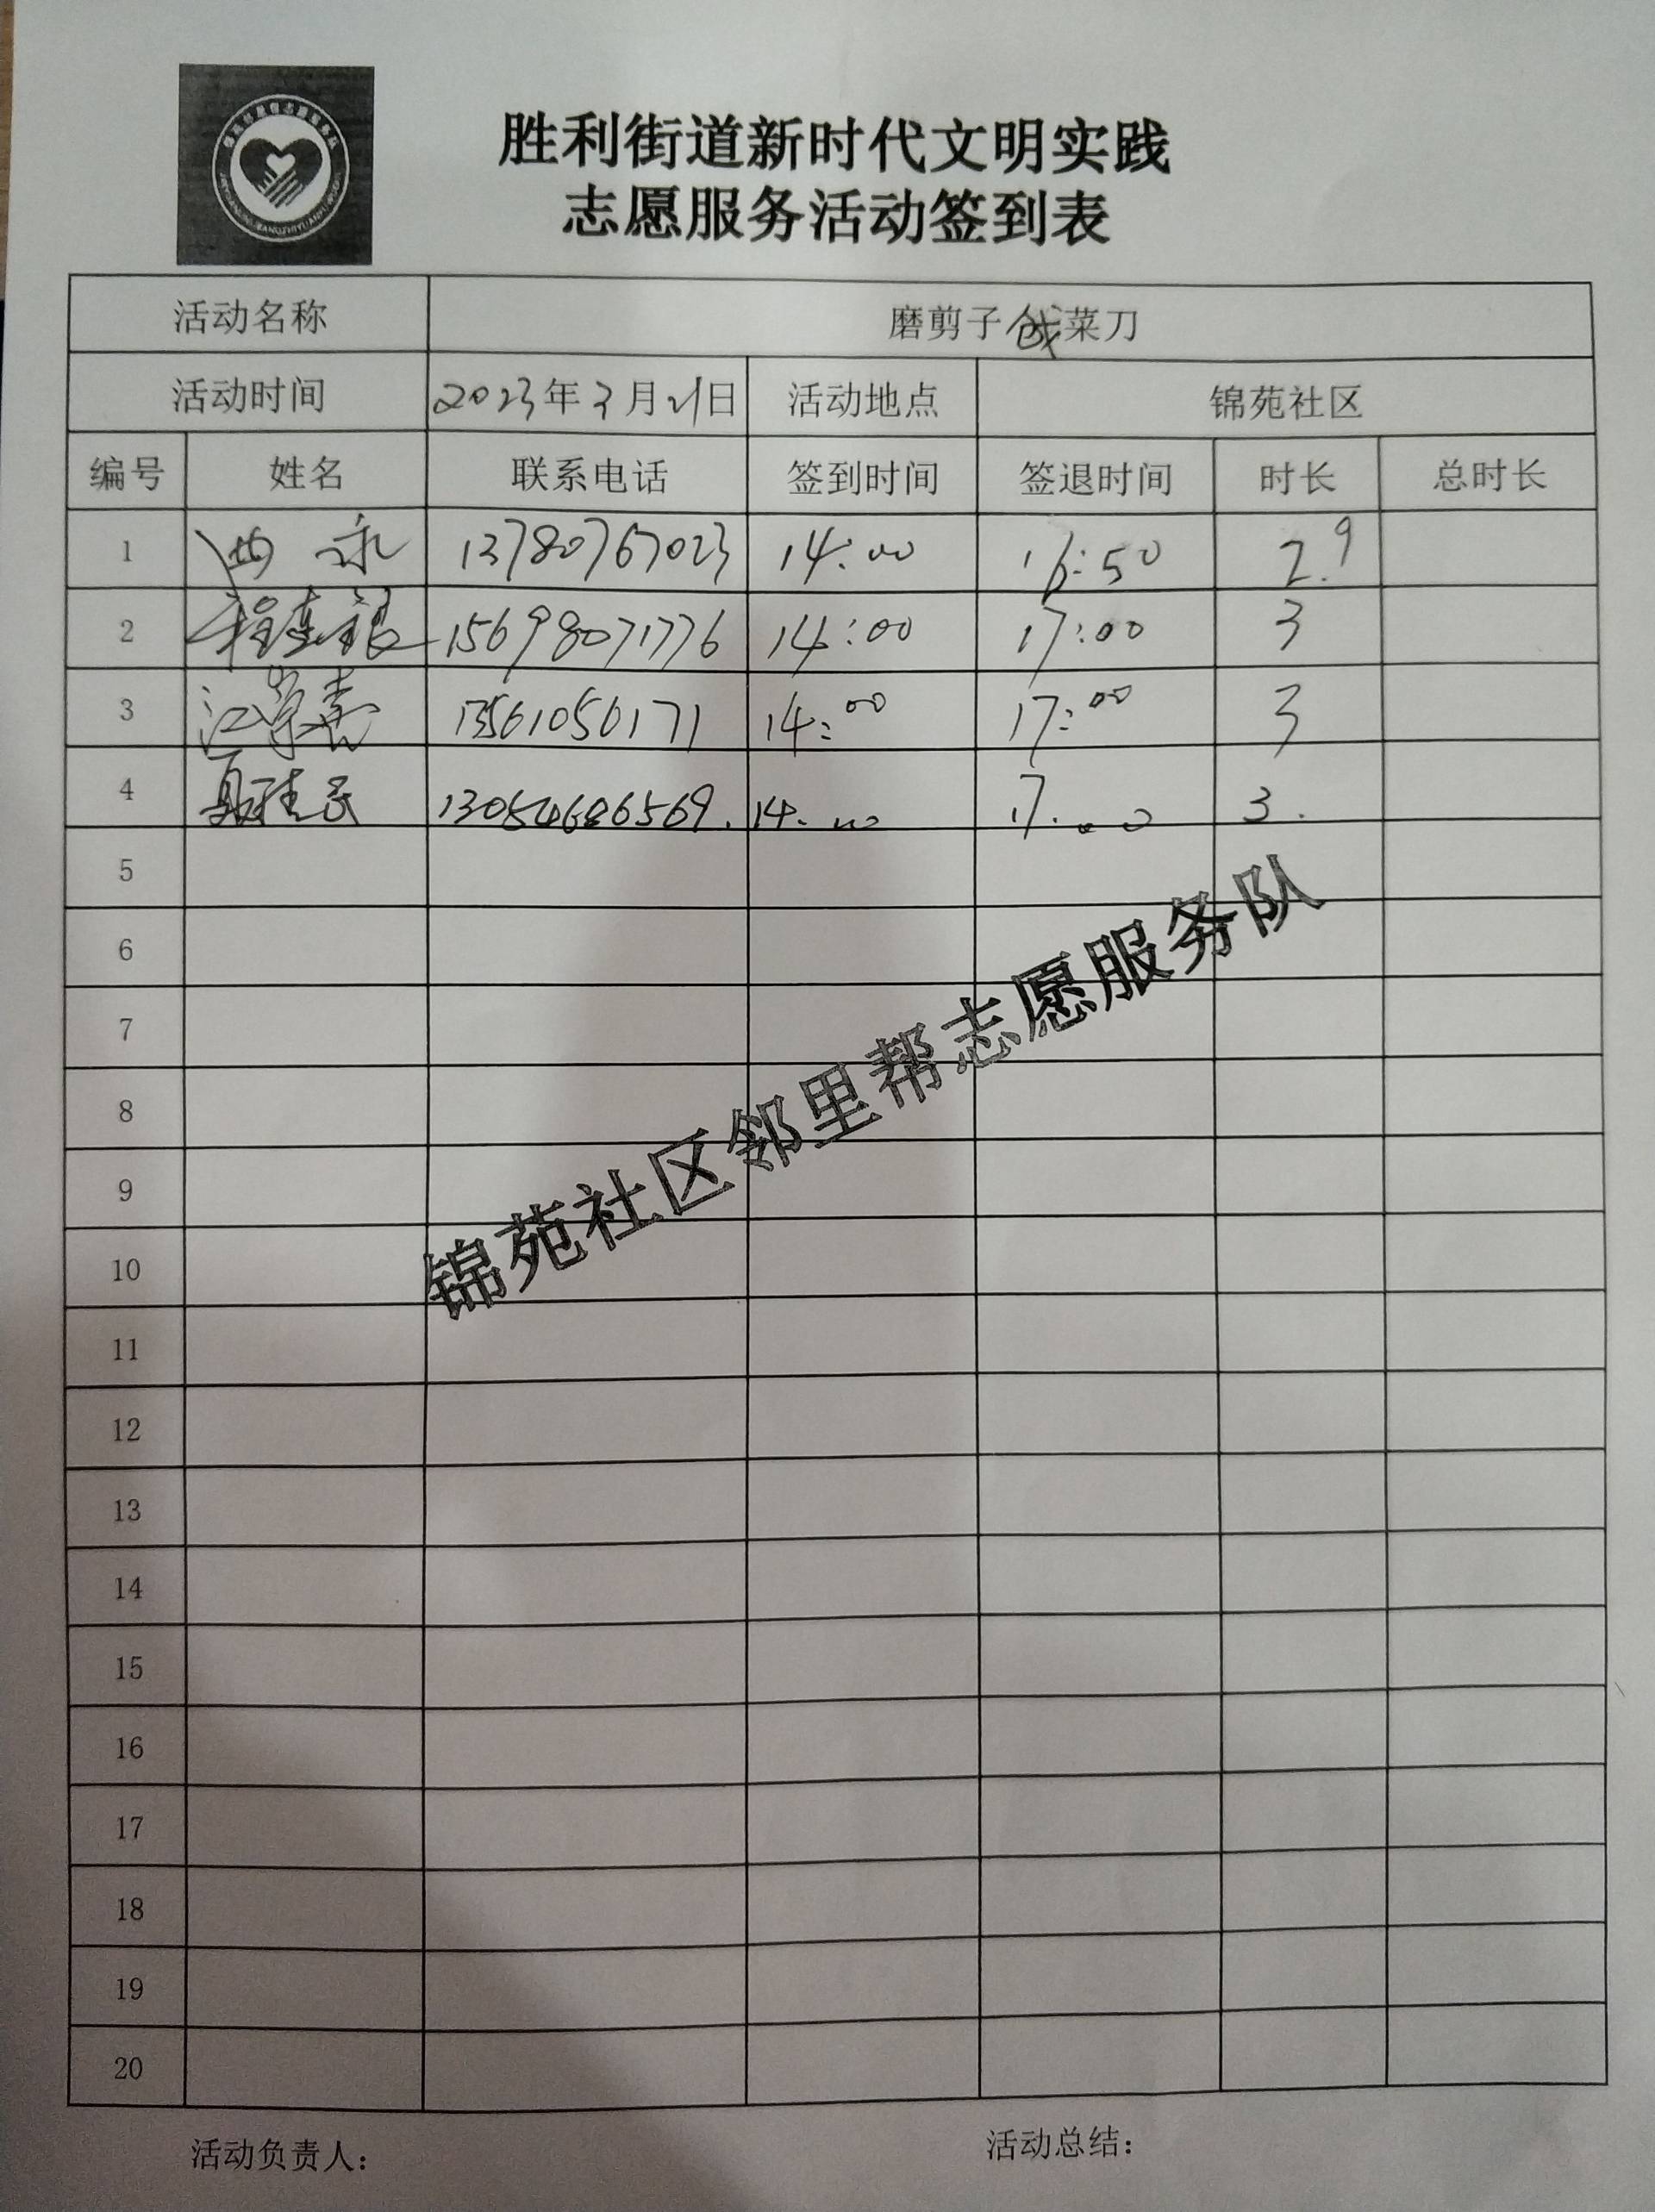 胜利街道新时代文明实践
志愿服务活动签到表
活动名称 磨剪子戗菜刀
活动时间 2023年3月21日 活动地点 锦苑社区
编号 姓名 联系电话 签到时间 签退时间 时长 总时长
1 13780767023 14:00 16:50 2.9
2 15698071776 14:00 17:00 3
3 江 13561056171 14:00 17:00 3
4 13054686569. 14.00 17.00 3.
5
6
7
8
9
10
11
12
13
14
15
16
17
18
19
20
锦苑社区邻里帮志愿服务队
活动负责人： 活动总结：